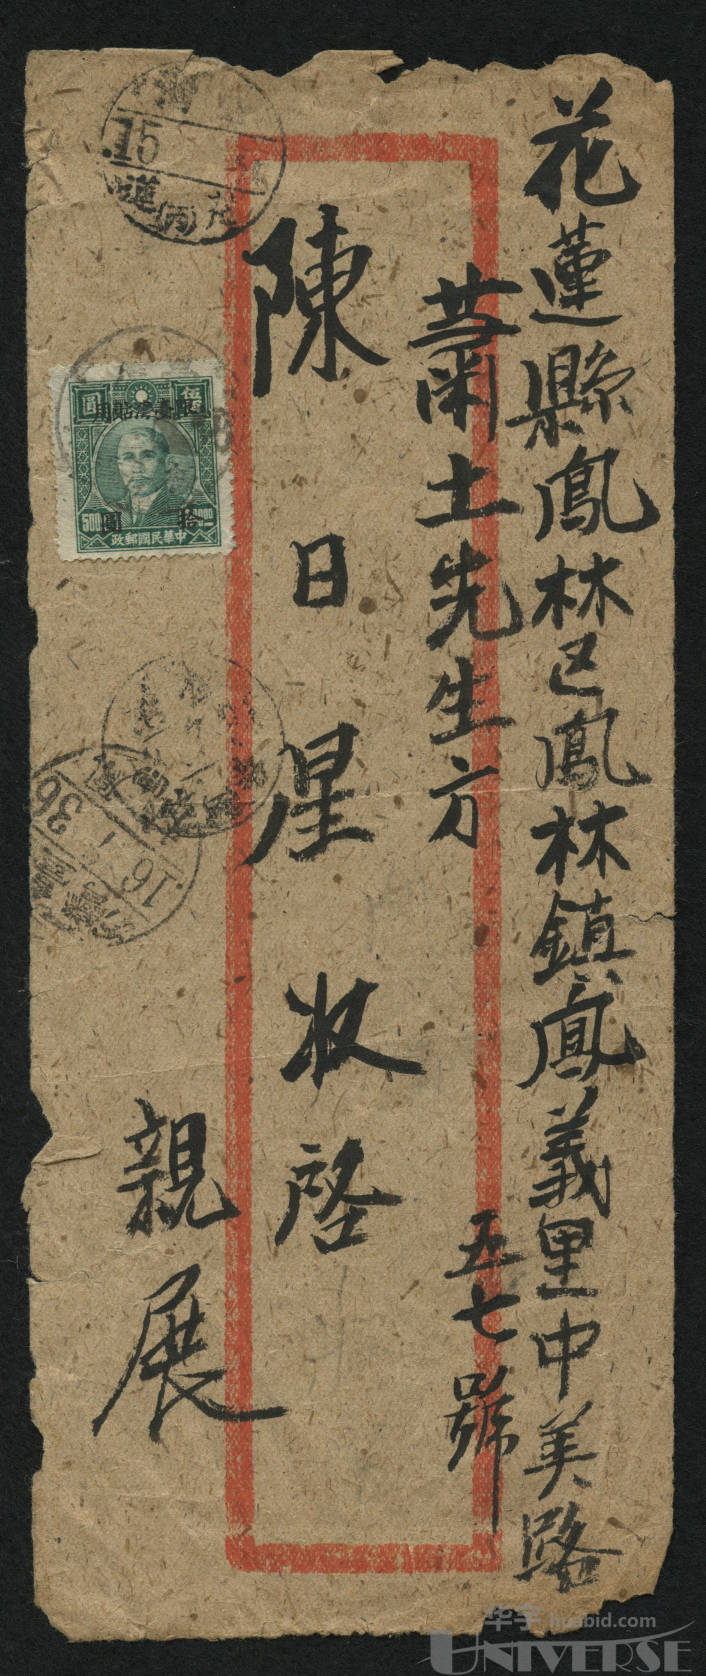 花蓮縣鳳林区鳳林鎮鳳義里中美路
五七號
蕭土先生方
陳日星收啓
親展
15
伍圓
限臺灣貼用
拾圓
500
中華民國郵政
16.1.36
华宇 huabid.com
UNIVERSE